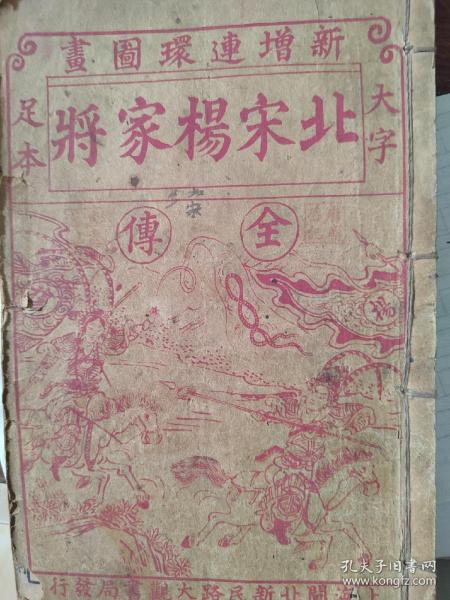 新增連環圖畫
大字
足本
北宋楊家將
全傳
楊
上海閘北新民路大觀書局發行
孔夫子旧书网